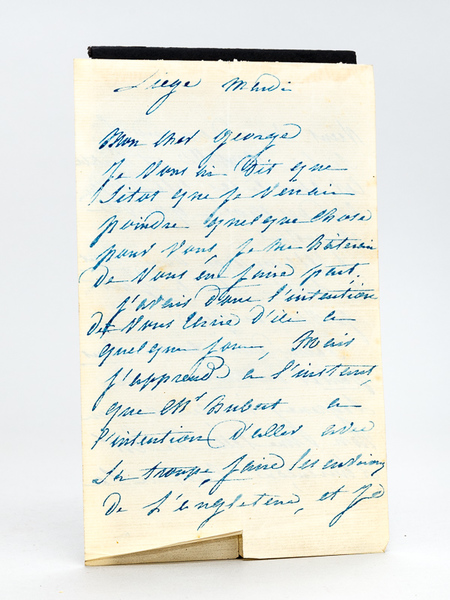 Liège Mardi
Mon cher George
Je vous ai dit que
sitot que je verrai
poindre quelque chose
pour vous, je me hâterai
de vous en faire part,
j'avais donc l'intention
de vous d'ici a
quelque jour, Mais
j'apprend a l'instant,
que Mr Hubert a
l'intention d'aller avec
sa troupe, faire les environs
de L'angleterre, et je